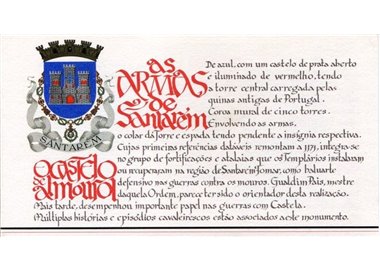 SANTARÉM
as
ARMAS
de
Santarém
De azul, com um castelo de prata aberto
e iluminado de vermelho, tendo
a torre central carregada pelas
quinas antigas de Portugal.
Coroa mural de cinco torres.
Envolvendo as armas,
o colar da Torre e espada tendo pendente a insígnia respectiva.
O castelo
de almourol
Cujas primeiras referências datáveis remontam a 1171, integra-se
no grupo de fortificações e atalaias que os Templários instalaram
ou recuperaram na região de Santarém/Tomar, como baluarte
defensivo nas guerras contra os mouros. Gualdim Pais, mestre
daquela Ordem, parece ter sido o orientador desta realização.
Mais tarde, desempenhou importante papel nas guerras com Castela.
Múltiplas histórias e episódios cavaleirescos estão associados a este monumento.